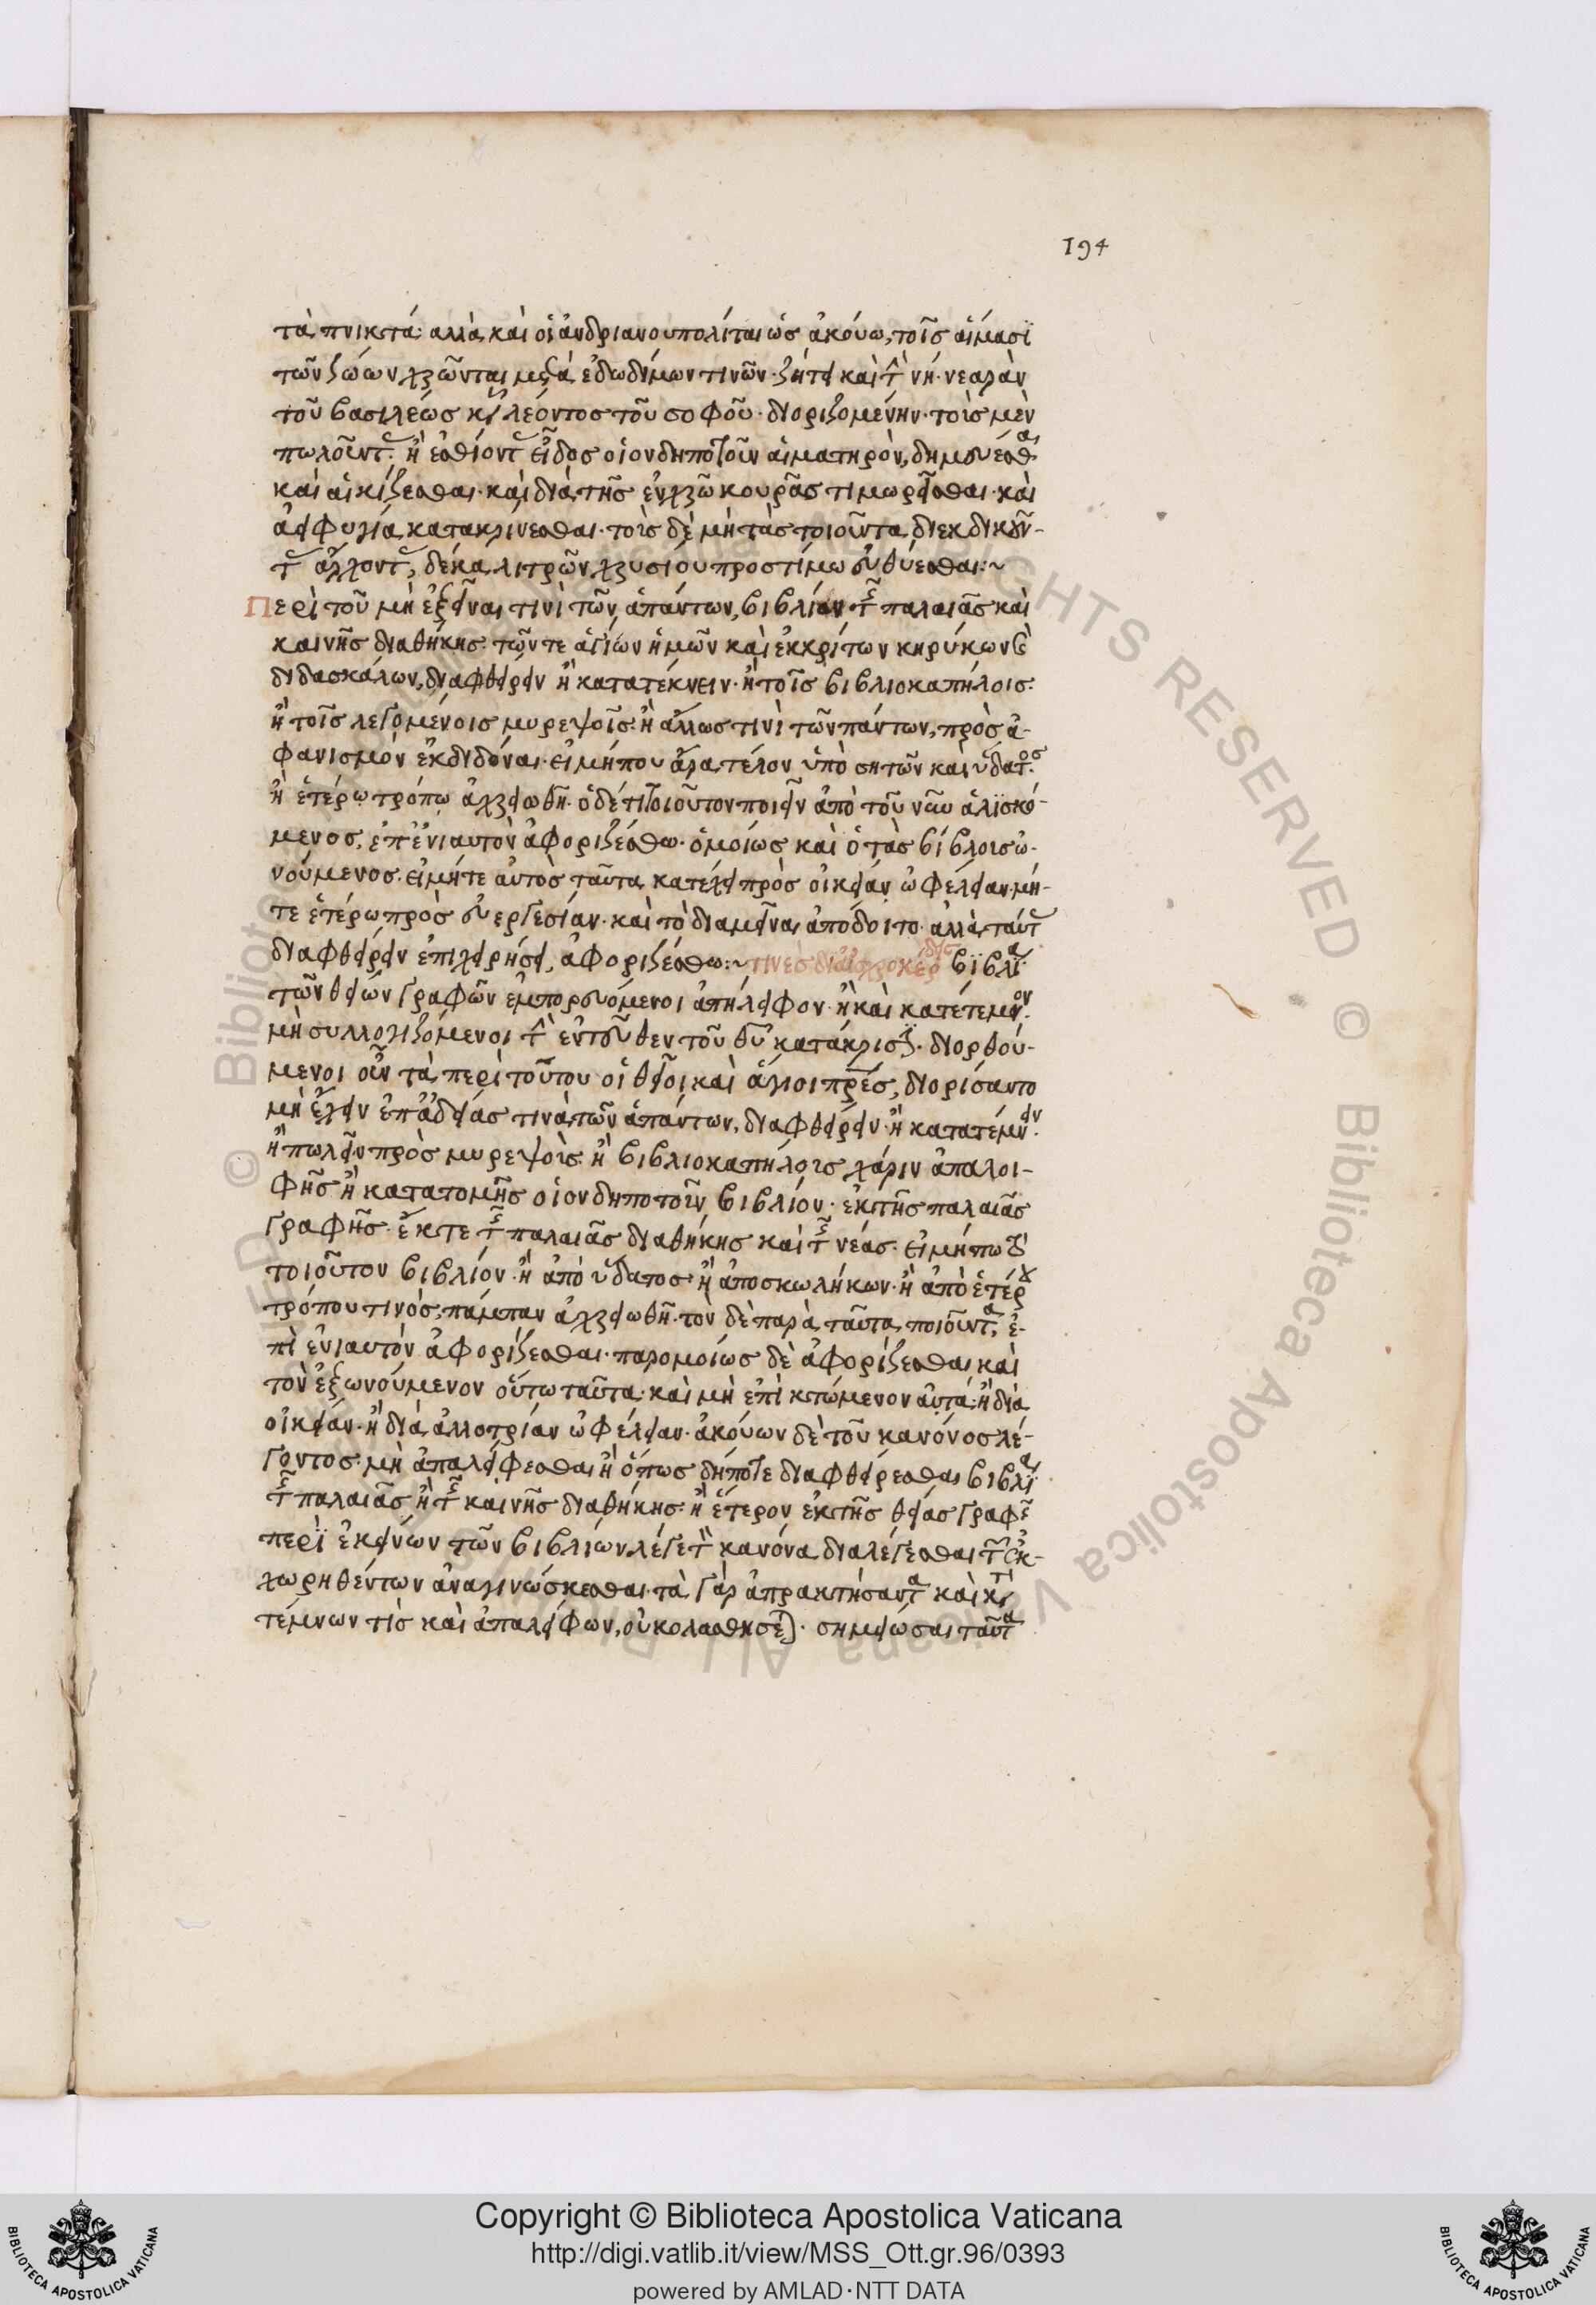 194
τὰ πνικτά· αλλὰ καὶ οἱ ἀνδριανουπολίται ὡς ἀκούω, τοῖς αἵμασϊ
τῶν ζώων χρῶνται μετὰ ἐδωδίμων τινῶν· ζήτει καὶ τὴν νή· νεαρὰν
τοῦ βασιλέως κυ λέοντος τοῦ σοφοῦ· διοριζομένην· τοὶς μὲν
πωλοῦντας ἢ ἐσθίοντας εἶδος οἱονδηποτοῦν αἱματηρὸν, δημεύεσθαι
καὶ αἰκίζεσθαι· καὶ διὰ τῆς ἐν χρῶ κουρᾶς τιμωρεῖσθαι· καὶ
ἀειφυγία κατακρινεσθαι· τοὶς δὲ μὴ τὰς τοιοῦτα διεκδικοῦν-
τας ἄρχοντας, δέκα λιτρῶν χρυσίου προστίμω εὐθύεσθαι:~
Περὶ τοῦ μὴ ἐξεῖναι τινὶ τῶν ἁπάντων, βιβλίον τῆς παλαιᾶς καὶ
καινῆς διαθήκης· τῶν τε ἁγίων ἡμῶν καὶ ἐκκρίτων κηρύκων καὶ
διδασκάλων, διαφθείρειν ἢ κατατέκνειν· ἢ τοῖς βιβλιοκαπήλοις·
ἢ τοῖς λεγομένοις μυρεψοῖς· ἢ ἄλλως τινὶ τῶν πάντων, πρὸς ἀ-
φανισμὸν ἐκδιδόναι· εἰ μήπου ἄρα τέλον ὑπὸ σητῶν καὶ ὕδατος
ἢ ἑτέρω τρόπω ἀχρειωθῆ· ὁ δέ τι τοιοῦτον ποιεῖν ἀπὸ τοῦ νῦν ἁλϊσκό-
μενος, ἐπ' ἐνιαυτὸν ἀφοριζέσθω· ὁμοίως καὶ ὁ τὰς βίβλοις ὠ-
νούμενος· εἰ μήτε ἀυτὸς ταῦτα κατέχει πρὸς οἰκείαν ὠφέλειαν· μή-
τε ἑτέρω πρὸς εὐεργεσίαν· καὶ τὸ διαμεῖναι ἀπόδοιτο· ἀλλὰ ταῦτα
διαφθείρειν ἐπιχειρήσει, ἀφοριζέσθω:~ τινὲς δι' αἰσχροκερδίας βϊβλϊα
τῶν θείων γραφῶν ἐμπορευόμενοι ἀπήλειφον· ἢ καὶ κατέτεμνον·
μὴ συλλογιζόμενοι τὴν ἐντεῦθεν τοῦ θυ κατάκρισϊν· διορθού-
μενοι οὖν τὰ περὶ τοῦτου οἱ θεῖοι καὶ ἅγιοι πρες, διορίσαντο
μὴ ἔχειν ἐπ' ἀδείας τινὰ τῶν ἁπάντων, διαφθείρειν· ἢ κατατέμνειν·
ἢ πωλεῖν πρὸς μυρεψοὶς· ἢ βιβλιοκαπήλοις χάριν ἀπαλοι-
φῆς ἢ κατατομῆς οἱονδηποτοῦν βιβλίον· ἐκ τῆς παλαιᾶς
γραφῆς· ἔκ τε τῆς παλαιᾶς διαθήκης καὶ τῆς νέας· εἰ μήπω τὸ
τοιοῦτον βιβλίον· ἢ ἀπὸ ὕδατος· ἢ ἀπο σκωλήκων· ἢ ἀπὸ ἑτέρου
τρόπου τινὸς, πάμπαν ἀχρειωθῆ· τὸν δὲ παρὰ ταῦτα ποιοῦντα, ἐ-
πὶ ἐνιαυτὸν ἀφορίζεσθαι· παρομοίως δὲ ἀφορίζεσθαι καὶ
τὸν ἐξωνούμενον οὕτω ταῦτα· καὶ μὴ ἐπὶ κτώμενον ἀυτά· ἢ διὰ
οἰκείαν· ἢ διὰ ἀλλοτρίαν ὠφέλειαν· ἀκούων δὲ τοῦ κανόνος λέ-
γοντος· μὴ ἀπαλείφεσθαι ἢ ὅπως δήποτε διαφθείρεσθαι βιβλϊα
τῆς παλαιᾶς ἢ τῆς καινῆς διαθήκης· ἢ ἕτερον ἐκ τῆς θείας γραφῆς
περὶ ἐκείνων τῶν βιβλίων λέγε τὸν κανόνα διαλέγεσθαι τῶν ἐκ-
χωρηθέντων ἀναγινώσκεσθαι· τὰ γὰρ ἀπρακτήσαντα καὶ κατα
τέμνων τὶς καὶ ἀπαλείφων, οὐ κολασθήσεται· σημείωσαι ταῦτα
Copyright © Biblioteca Apostolica Vaticana
http://digi.vatlib.it/view/MSS_Ott.gr.96/0393
powered by AMLAD·NTT DATA